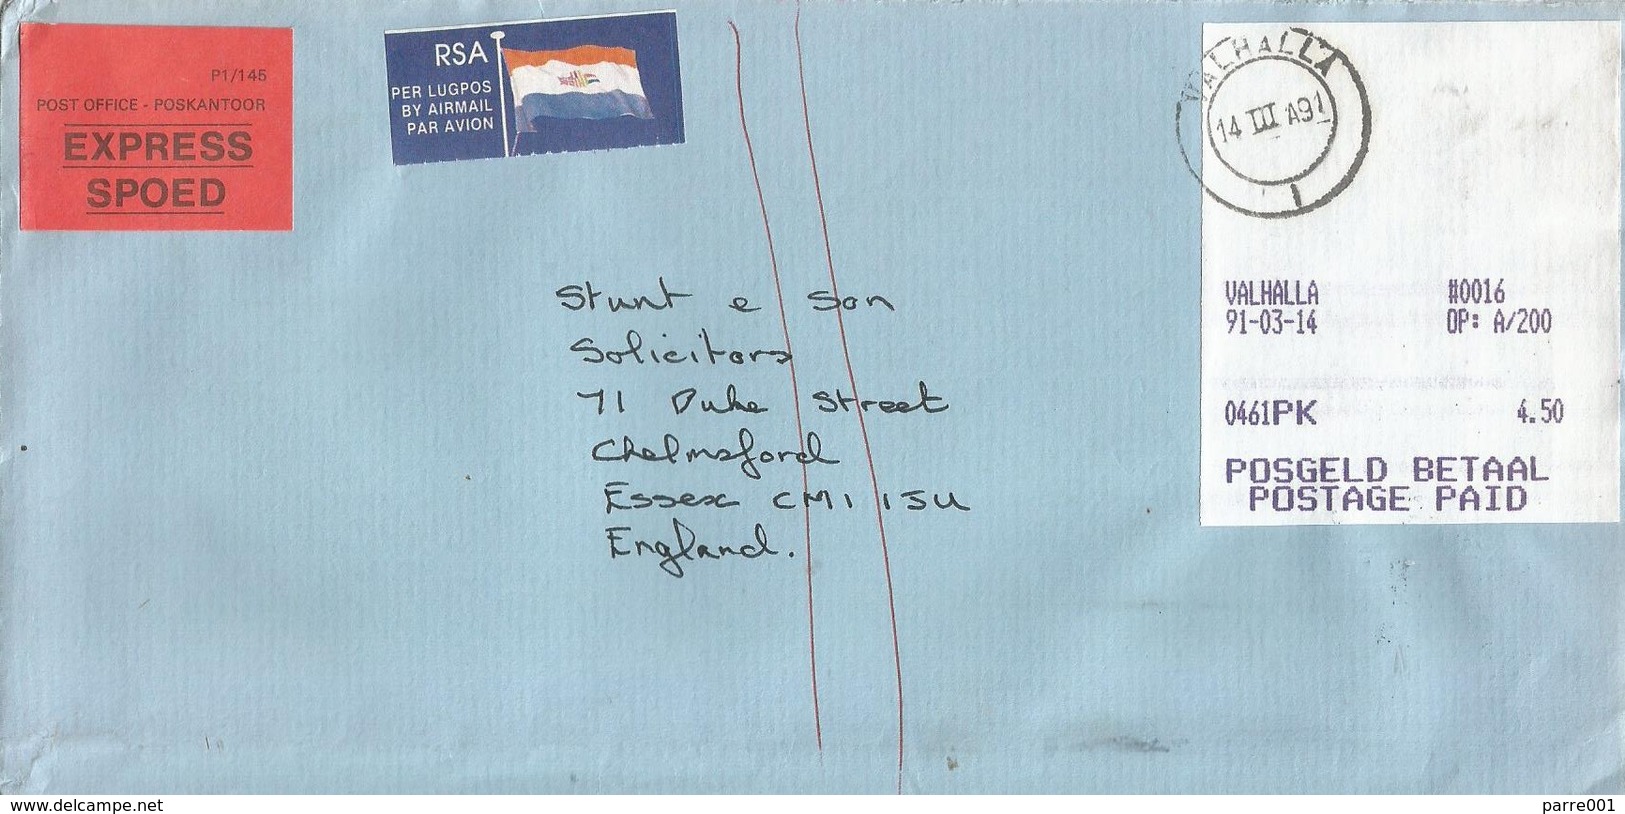 P1/145
POST OFFICE - POSKANTOOR
EXPRESS
SPOED
RSA
PER LUGPOS
BY AIRMAIL
PAR AVION
VALHALLA
14 III A91
1
VALHALLA #0016
91-03-14 OP: A/200
0461PK 4.50
POSGELD BETAAL
POSTAGE PAID
Stunt e Son
Solicitors
71 Duke Street
Chelmsford
Essex CM1 1JU
England.
www.delcampe.net
parre001